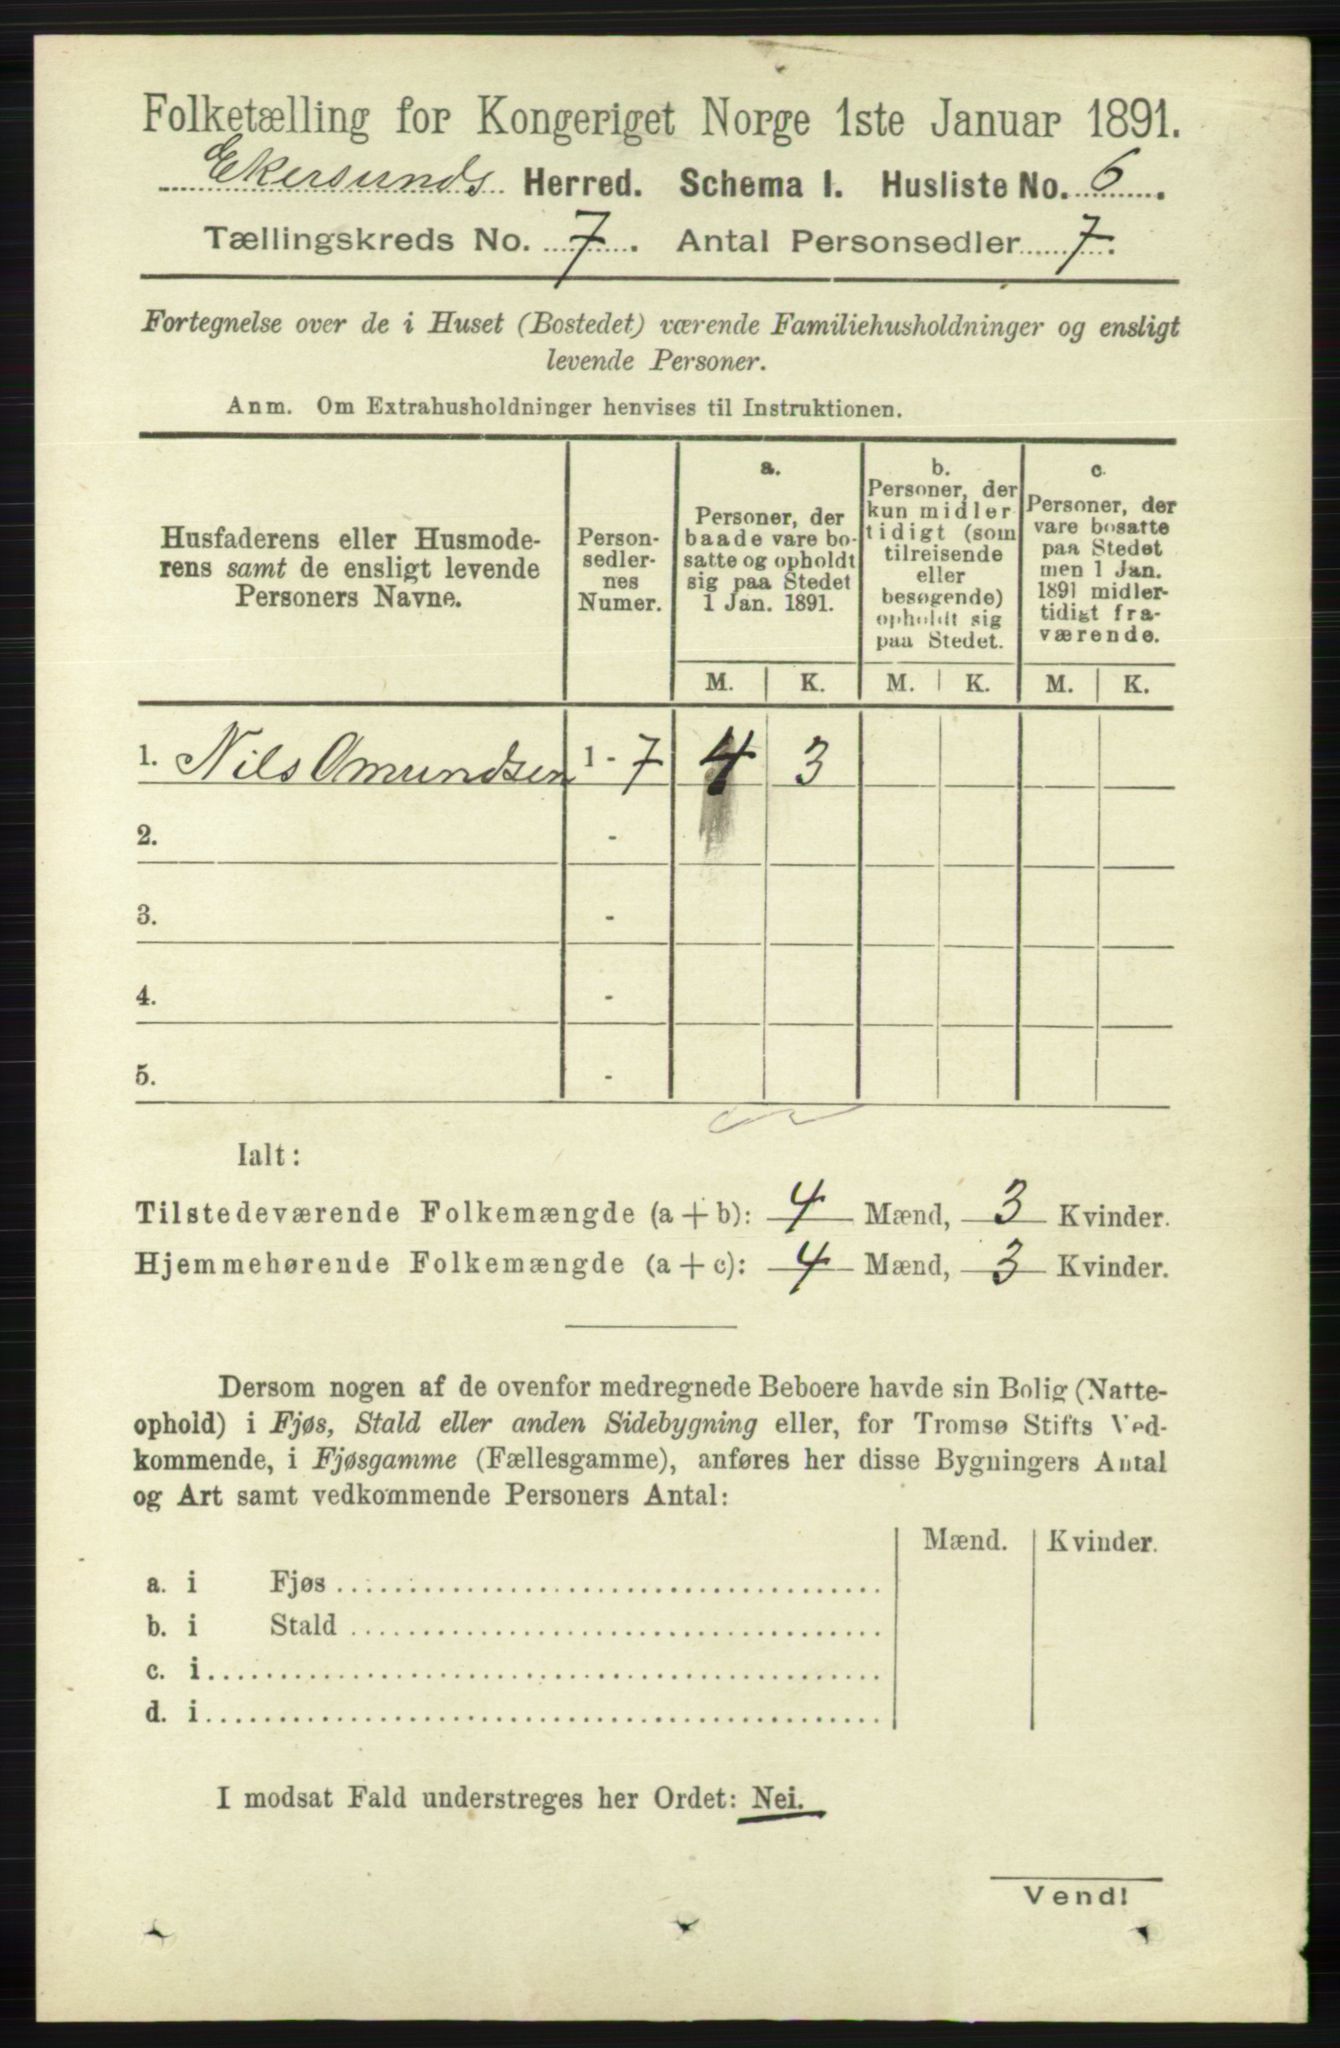 Folketælling for Kongeriget Norge 1ste Januar 1891.
Ekersunds Herred. Schema 1. Husliste No. 6.
Tællingskreds No. 7. Antal Personsedler 7.
Fortegnelse over de i Huset (Bostedet) værende Familiehusholdninger og ensligt
levende Personer.
Anm. Om Extrahusholdninger henvises til Instruktionen.
Husfaderens eller Husmode-
rens samt de ensligt levende
Personers Navne.
Person-
sedler-
nes
Numer.
a.
Personer, der
baade vare bo-
satte og opholdt
sig paa Stedet
1 Jan. 1891.
b.
Personer, der
kun midler
tidigt (som
tilreisende
eller
besøgende)
opholdt sig
paa Stedet.
c.
Personer, der
vare bosatte
paa Stedet
men 1 Jan.
1891 midler-
tidigt fra-
værende.
M. K. M. K. M. K.
1. Nils Omundsen 1 - 7 4 3
2. -
3. -
4. -
5. -
Ialt:
Tilstedeværende Folkemængde (a + b): 4 Mænd, 3 Kvinder.
Hjemmehørende Folkemængde (a + c): 4 Mænd, 3 Kvinder.
Dersom nogen af de ovenfor medregnede Beboere havde sin Bolig (Natte-
ophold) i Fjøs, Stald eller anden Sidebygning eller, for Tromsø Stifts Ved-
kommende, i Fjøsgamme (Fællesgamme), anføres her disse Bygningers Antal
og Art samt vedkommende Personers Antal:
Mænd. Kvinder.
a. i Fjøs
b. i Stald
c. i
d. i
I modsat Fald understreges her Ordet: Nei.
Vend!